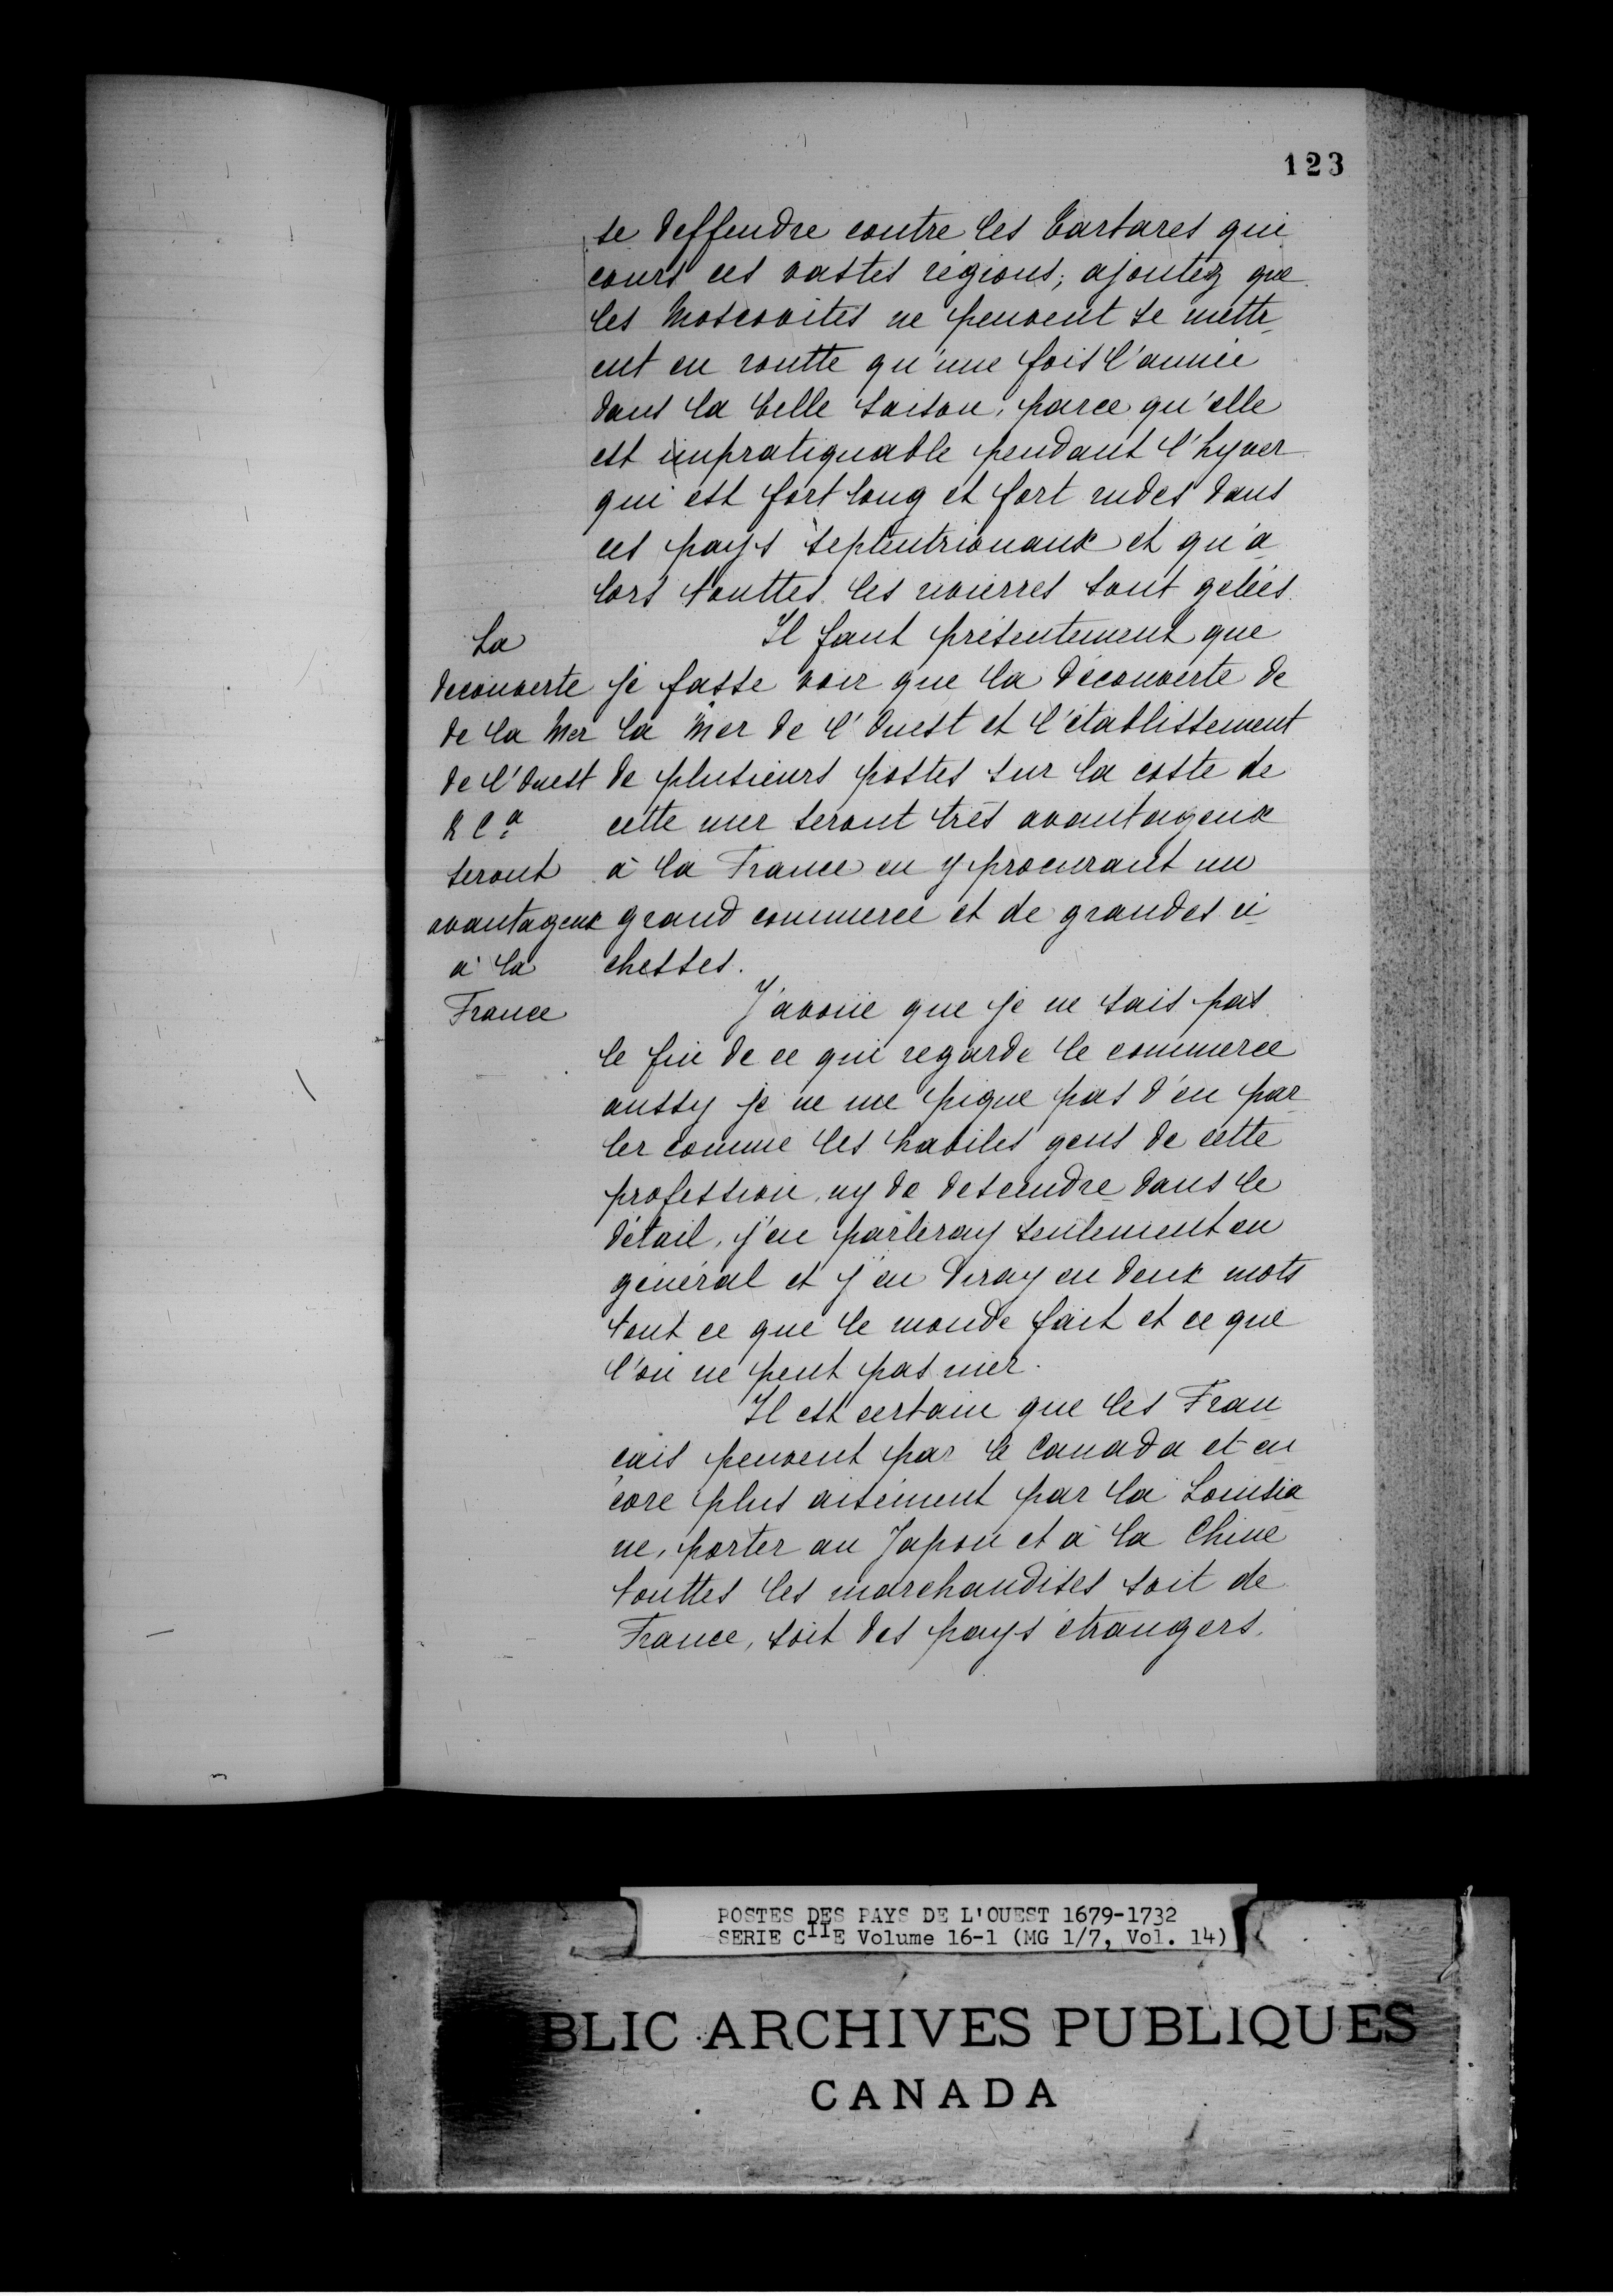 123
se deffendre contre les Tartares qui
cours ces vastes régions; ajoutez que
les Moscovites ne peuvent se mettr
ent en routte qu'une fois l'année
dans la belle saison, parce qu'elle
est impratiquable pendant l'hyver
qui est fort long et fort rudes dans
ces pays septentrionaux et qu'a
lors touttes les rivierres sont gelées.
Il faut présentement que
je fasse voir que la découverte de
la Mer de l'Ouest et l'établissement
de plusieurs postes sur la coste de
cette mer seront très avantageux
à la France en y procurant un
grand commerce et de grandes ri
chesses.
La
decouverte
de la Mer
de l'Ouest
&
seront
avantageux
à la
France
J'avoüe que je ne sais pas
le fin de ce qui regarde le commerce
aussy je ne me pique pas d'en par
ler comme les habiles gens de cette
profession, ny de descendre dans le
détail, j'en parleray seulement en
général et j'en diray en deux mots
tout ce que le monde sait et ce que
l'on ne peut pas nier.
Il est certain que les Fran
çais peuvent par le Canada et en
core plus aisément par la Louisia
ne, porter au Japon et à la Chine
touttes les marchandises soit de
France, soit des pays étrangers.
POSTES DES PAYS DE L'OUEST 1679-1732
SERIE CIIE Volume 16-1 (MG 1/7, Vol. 14)
BLIC ARCHIVES PUBLIQUES
CANADA